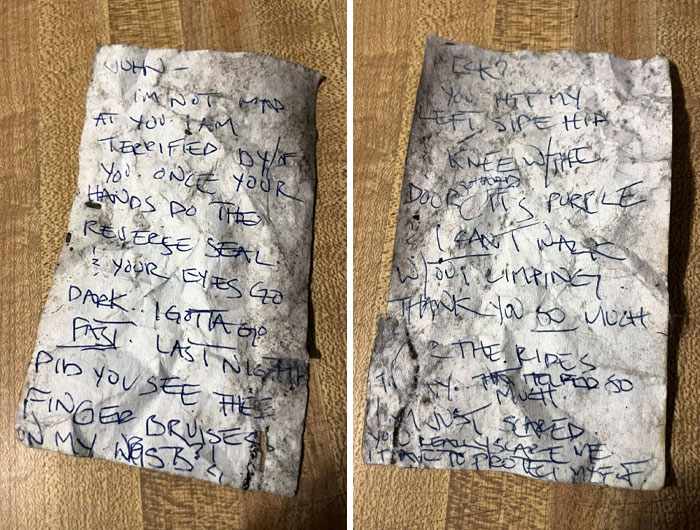 JOHN -
I'M NOT MAD
AT YOU. I AM
TERRIFIED BY/OF
YOU. ONCE YOUR
HANDS DO THE
REVERSE SEAL
& YOUR EYES GO
DARK.. I GOTTA GO
FAST. LAST NIGHT
DID YOU SEE THE
FINGER BRUISES
ON MY
NECK?
YOU HIT MY
LEFT SIDE HIP
& KNEE W/THE
DOOR IT'S PURPLE
& I CAN'T WALK
W/OUT LIMPING
THANK YOU SO MUCH
THE RIDES
THEY HELPED SO
MUCH.
I'M JUST SCARED.
YOU REALLY SCARE ME
I HAVE TO PROTECT MYSELF